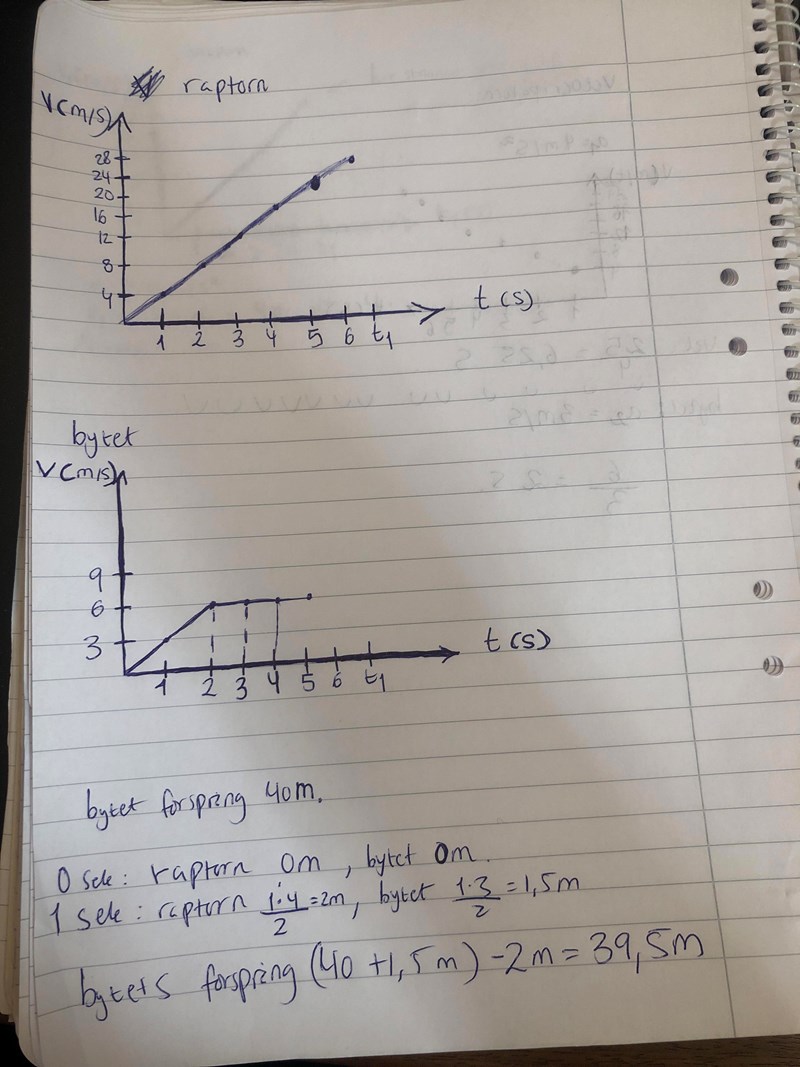 raptorn
V(m/s)
28
24
20
16
12
8
4
1 2 3 4 5 6 t1
t (s)
bytet
V(m/s)
9
6
3
1 2 3 4 5 6 t1
t (s)
bytet forspring 40m.
0 sek: raptorn 0m, bytet 0m.
1 sek: raptorn 1·4/2=2m, bytet 1·3/2=1,5m
bytets forspring (40+1,5m)-2m=39,5m